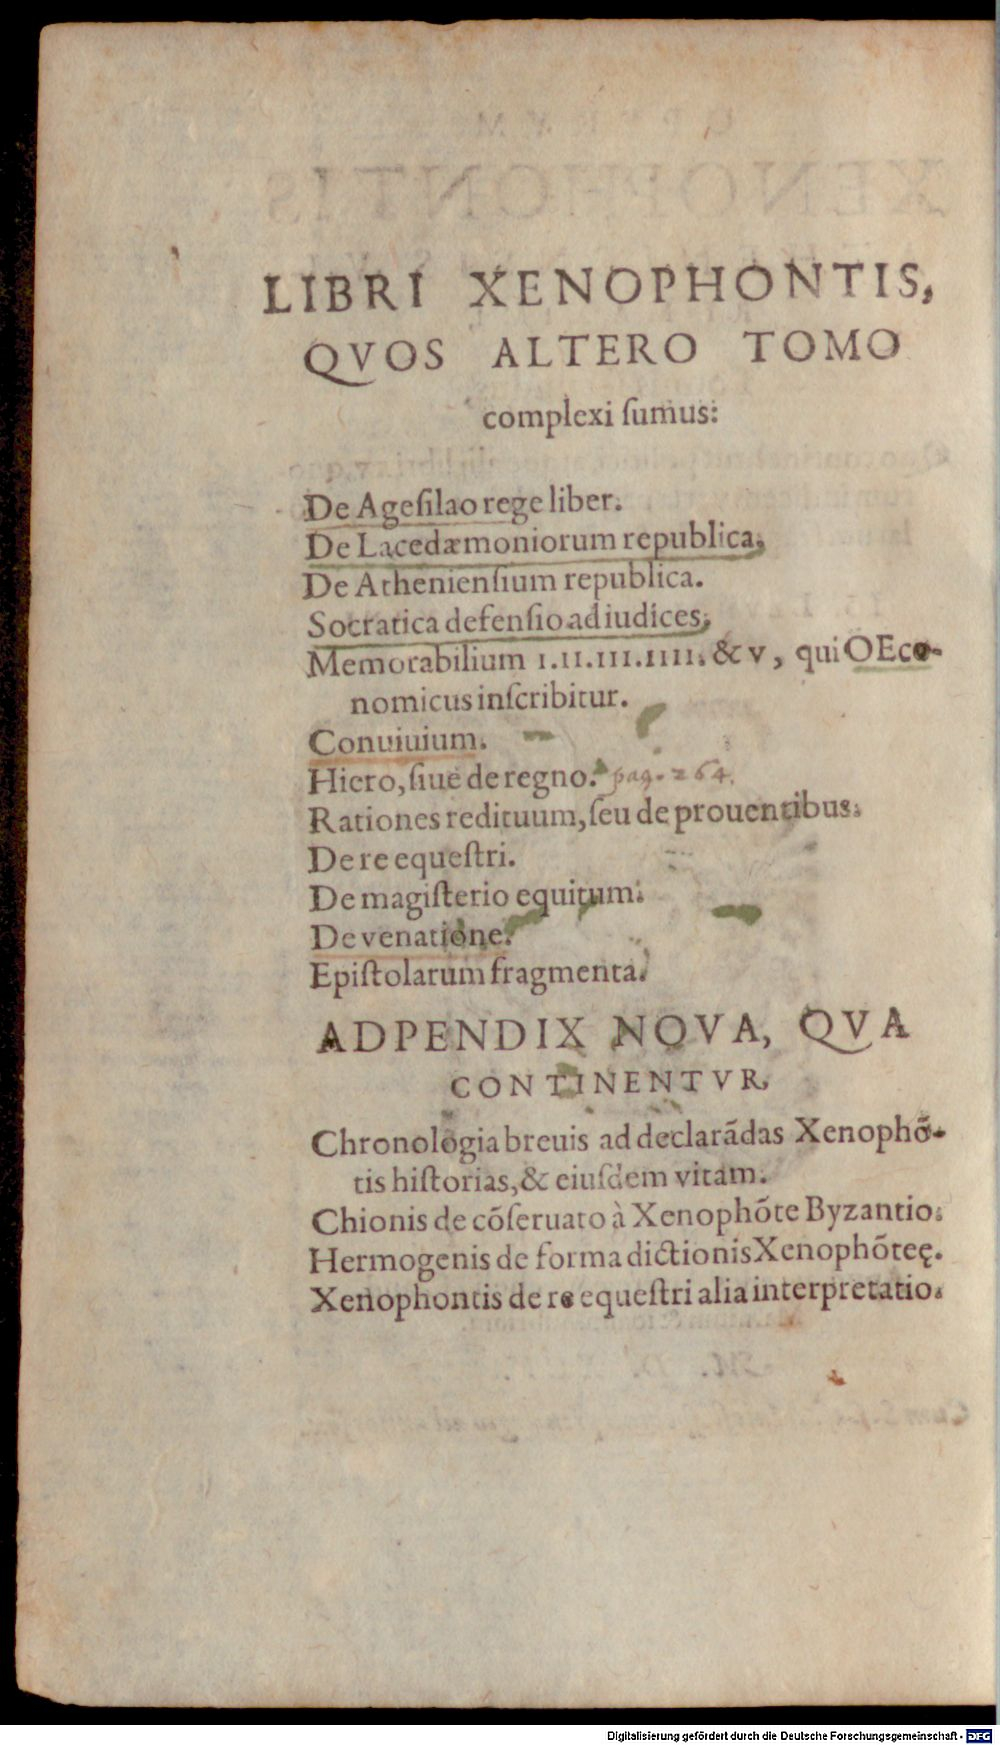 LIBRI XENOPHONTIS,
QVOS ALTERO TOMO
complexi ſumus:
De Ageſilao rege liber.
De Lacedæmoniorum republica.
De Athenienſium republica.
Socratica defenſio ad iudices.
Memorabilium I.II.III.IIII. & V, qui OEco-
nomicus inſcribitur.
Conuiuium.
Hiero, ſiue de regno. pag. 264.
Rationes redituum, ſeu de prouentibus.
De re equeſtri.
De magiſterio equitum.
De venatione.
Epiſtolarum fragmenta.
ADPENDIX NOVA, QVA
CONTINENTVR,
Chronologia breuis ad declarãdas Xenophõ-
tis hiſtorias, & eiuſdem vitam.
Chionis de cõſeruato à Xenophõte Byzantio.
Hermogenis de forma dictionis Xenophõteę.
Xenophontis de re equeſtri alia interpretatio.
Digitalisierung gefördert durch die Deutsche Forschungsgemeinschaft - DFG